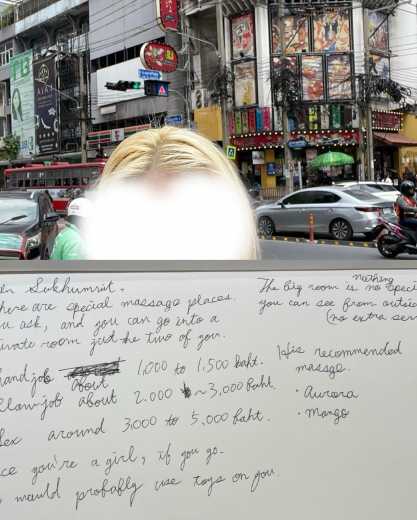 n Sukhumvit.
here are special massage places.
u ask, and you can go into a
ivate room just the two of you.
andjob about 1,000 to 1,500 baht.
lowjob about 2.000 ~ 3,000 baht.
ex around 3,000 to 5,000 baht.
ce you're a girl, if you go.
would probably use toys on you.
nothing
The big room is no speci
you can see from outsi
(no extra ser
His recommended
massge.
· Aurora
· Mango